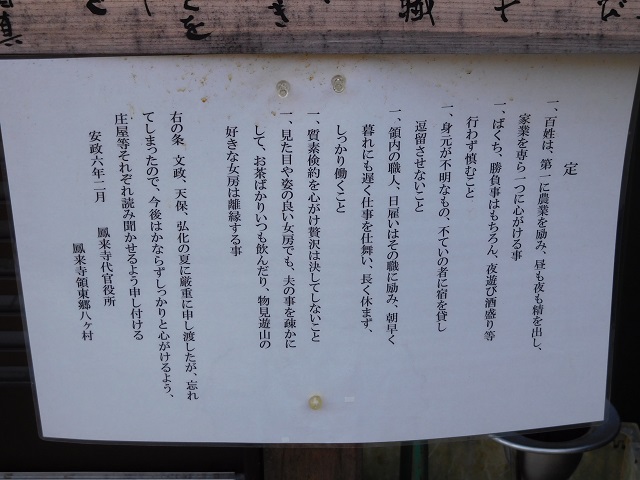 定
一、百姓は、第一に農業を励み、昼も夜も精を出し、
家業を専ら一つに心がける事
一、ばくち、勝負事はもちろん、夜遊び酒盛り等
行わず慎むこと
一、身元が不明なもの、不ていの者に宿を貸し
逗留させないこと
一、領内の職人、日雇いはその職に励み、朝早く
暮れにも遅く仕事を仕舞い、長く休まず、
しっかり働くこと
一、質素倹約を心がけ贅沢は決してしないこと
一、見た目や姿の良い女房でも、夫の事を疎かに
して、お茶ばかりいつも飲んだり、物見遊山の
好きな女房は離縁する事
右の条 文政、天保、弘化の夏に厳重に申し渡したが、忘れ
てしまったので、今後はかならずしっかりと心がけるよう、
庄屋等それぞれ読み聞かせるよう申し付ける
安政六年二月 鳳来寺代官役所
鳳来寺領東郷八ヶ村